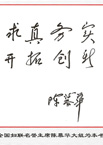 求真务实
开拓创新
陈慕华
全国妇联名誉主席陈慕华大姐为本书